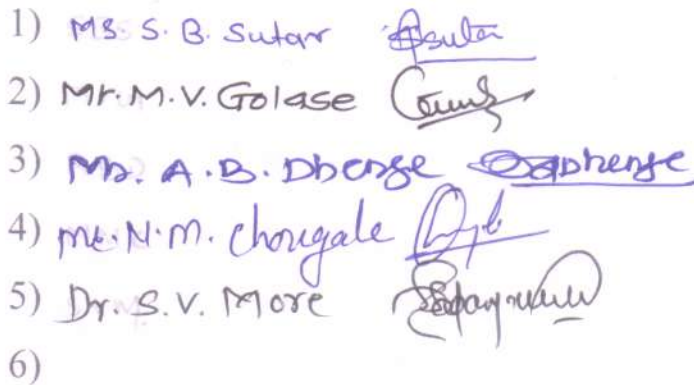 1) Ms. S. B. Sutar
2) Mr. M. V. Golase
3) Mr. A. B. Dhenge
4) Mr. N. M. Chougale
5) Dr. S. V. More
6)